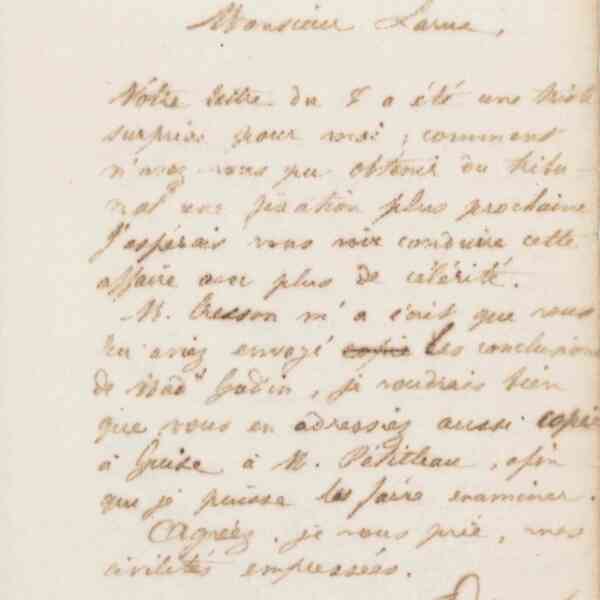 Monsieur Larue,
Votre lettre du 8 a été une triste
surprise pour moi ; comment
n'avez-vous pu obtenir du tribu-
nal une fixation plus prochaine
J'espérais vous voir conduire cette
affaire avec plus de célérité.
M. Cresson m'a écrit que vous
lui aviez envoyé copie les conclusions
de Made Godin, je voudrais bien
que vous en adressiez aussi copie
à Guise à M. Petitleau, afin
que je puisse les faire examiner.
Agréez, je vous prie, mes
civilités empressées.